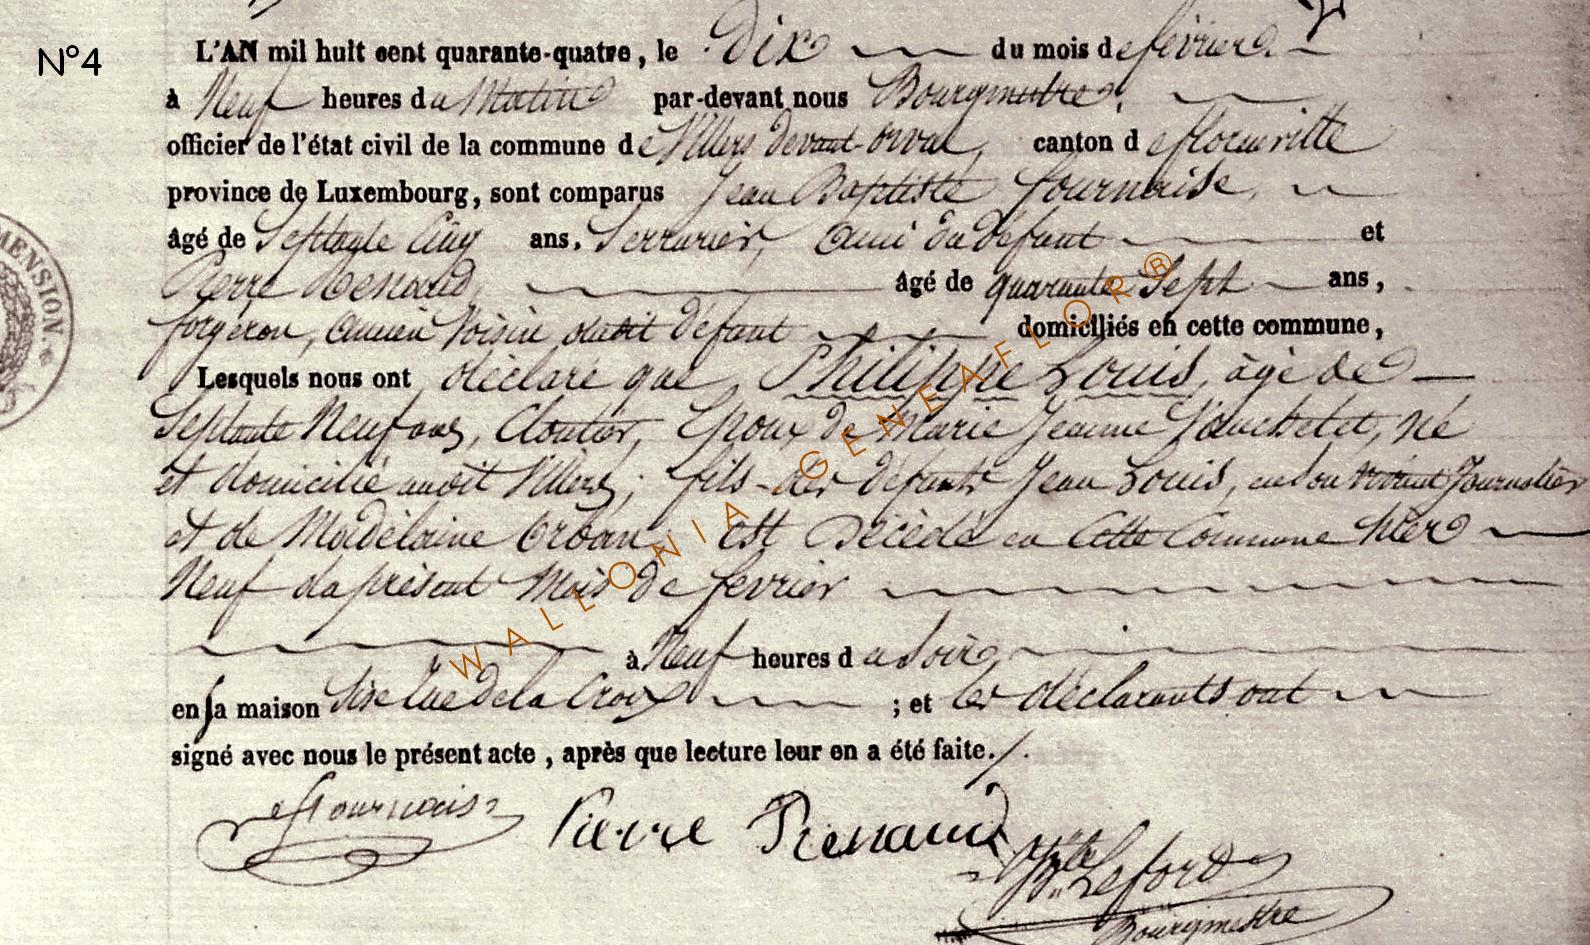 N°4
L'AN mil huit cent quarante-quatre, le Dix du mois de février
à Neuf heures du Matin par-devant nous Bourgmestre,
officier de l'état civil de la commune de Villers devant orval, canton de florenville
province de Luxembourg, sont comparus Jean Baptiste fournaise,
âgé de Septante Cinq ans, Serrurier, ami du défunt et
Pierre Renaud âgé de quarante Sept ans,
forgeron, ancien Voisin dudit défunt domiciliés en cette commune,
Lesquels nous ont déclaré que Philippe Louis, âgé de
Septante Neuf ans, Cloutier, Epoux de Marie Jeanne, né
et domicilié audit Villers; fils des défunts Jean Louis, en son vivant Journalier
et de Madelaine Orban, est Décédé en cette Commune hier
Neuf du présent Mois de fevrier
à Neuf heures du Soir
en sa maison Sise rue de la Croix ; et les déclarants ont
signé avec nous le présent acte, après que lecture leur en a été faite./.
Fournaise Pierre Renaud
Lefort
Bourgmestre
MENSION.
WALLONIA GENEAFLOR®